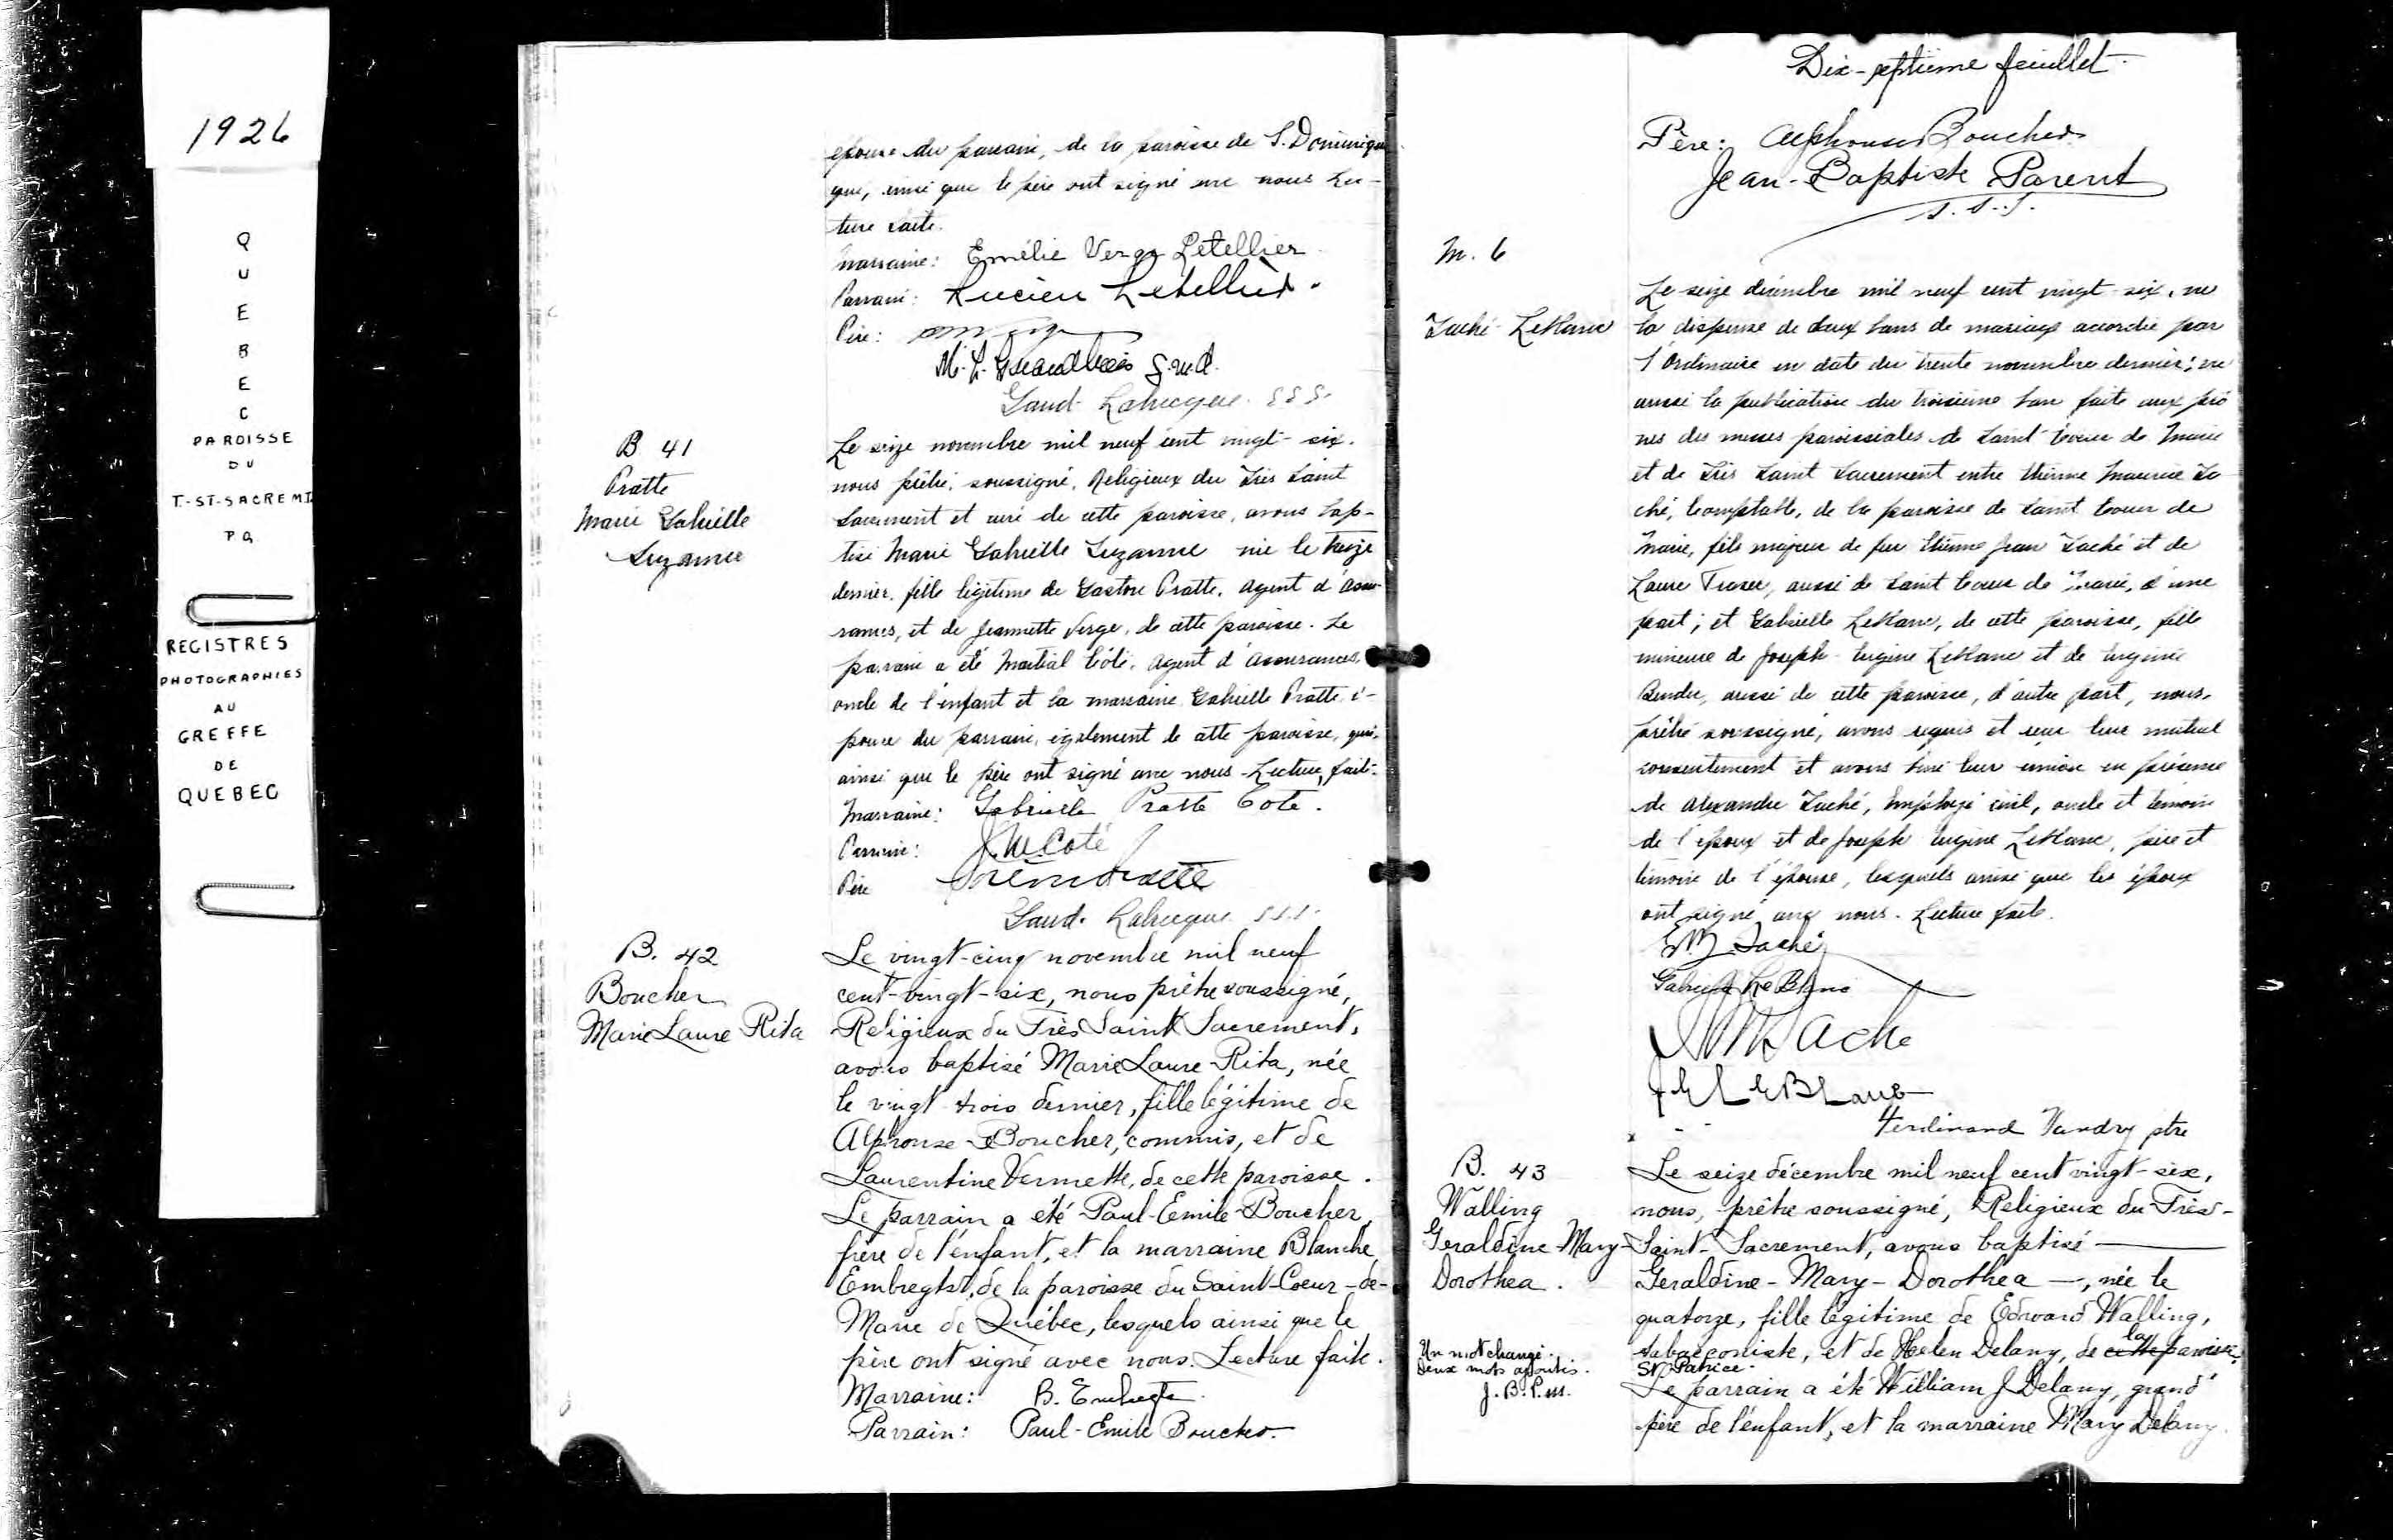 1926
QUEBEC
PAROISSE
DU
T.-ST-SACREMT
P.Q.
REGISTRES
PHOTOGRAPHIES
AU
GREFFE
DE
QUEBEC
épouse du parrain, de la paroisse de S. Dominique
qui, ainsi que le père ont signé avec nous Lec-
ture faite.
Marraine: Emélie Verge Letellier
Parrain: Lucien Letellier.
Père:
Gaud. Labrecque S.S.S.
B 41
Pratte
Marie Gabrielle
Suzanne
Le seize novembre mil neuf cent vingt-six.
nous prêtre, soussigné, Religieux du Très Saint
Sacrement et curé de cette paroisse, avons bap-
tisé Marie Gabrielle Suzanne née le treize
dernier, fille légitime de Gaston Pratte, agent d'assu-
rances, et de Jeannette Verge, de cette paroisse. Le
parrain a été Martial Côté, agent d'assurances,
oncle de l'enfant et la marraine Gabrielle Pratte, é-
pouse du parrain, également de cette paroisse, qui,
ainsi que le père ont signé avec nous - Lecture faite.
Marraine: Gabrielle Pratte Coté.
Parrain: J. M. Coté
Père
Gaud. Labrecque S.S.S.
B. 42
Boucher
Marie Laure Rita
Le vingt-cinq novembre mil neuf
cent-vingt-six, nous prêtre soussigné,
Religieux du Très Saint Sacrement,
avons baptisé Marie Laure Rita, née
le vingt-trois dernier, fille légitime de
Alphonse Boucher, commis, et de
Laurentine Vermette, de cette paroisse.
Le parrain a été Paul-Emile Boucher,
frère de l'enfant, et la marraine Blanche
Embregts, de la paroisse du Saint-Coeur-de-
Marie de Québec, lesquels ainsi que le
père ont signé avec nous. Lecture faite.
Marraine: B. Embregts
Parrain: Paul-Emile Boucher.
Dix-septième feuillet
Père: Alphonse Boucher
Jean-Baptiste Parent
s.s.s.
M. 6
Taché LeBlanc
Le seize décembre mil neuf cent vingt-six, vu
la dispense de deux bans de mariage accordée par
l'Ordinaire en date du trente novembre dernier; vu
aussi la publication du troisième ban faite aux prô
nes des messes paroissiales de Saint Coeur de Marie
et du Très Saint Sacrement entre Etienne Maurice Ta
ché, Comptable, de la paroisse de Saint Coeur de
Marie, fils majeur de feu Etienne Jean Taché et de
Laure Fraser, aussi de Saint Coeur de Marie, d'une
part; et Gabrielle LeBlanc, de cette paroisse, fille
mineure de Joseph-Eugène LeBlanc et de Eugénie
Bender, aussi de cette paroisse, d'autre part, nous,
prêtre soussigné, avons requis et reçu leur mutuel
consentement et avons béni leur union en présence
de Alexandre Taché, Employé civil, oncle et témoin
de l'époux et de Joseph Eugène LeBlanc, père et
témoin de l'épouse, lesquels ainsi que les époux
ont signé avec nous. Lecture faite.
E. M. Taché
Gabrielle LeBlanc
Taché
J E LEBLANC
Ferdinand Vandry ptre
B. 43
Walling
Geraldine-Mary-
Dorothea.
Le seize décembre mil neuf cent vingt-six,
nous, prêtre soussigné, Religieux du Très-
Saint-Sacrement, avons baptisé
Geraldine-Mary-Dorothea —, née le
quatorze, fille légitime de Edward Walling,
tabacconiste, et de Helen Delany, de cette la paroisse
St Patrice.
Un mot changé.
Deux mots ajoutés.
J. B. P. sss.
Le parrain a été William J Delany, grand
père de l'enfant, et la marraine Mary Delany.